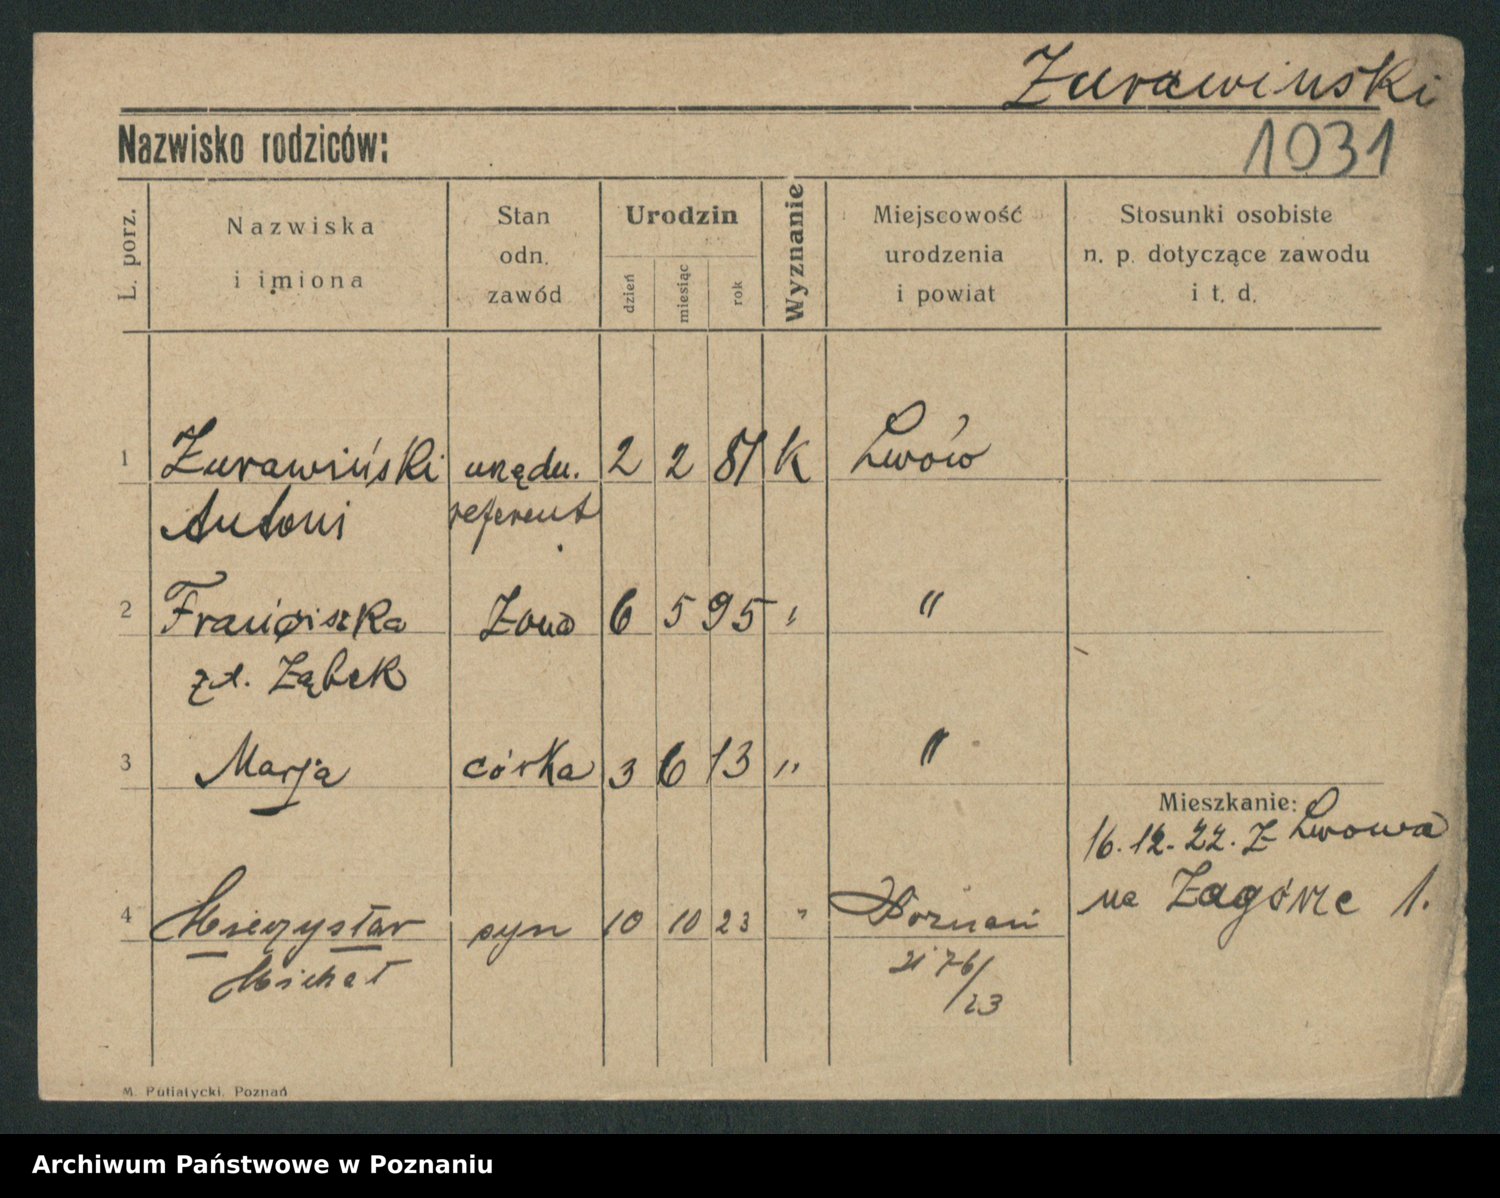 Żurawiński
Nazwisko rodziców:
1031
L. porz.
Nazwiska
i imiona
Stan
odn.
zawód
Urodzin
dzień
miesiąc
rok
Wyznanie
Miejscowość
urodzenia
i powiat
Stosunki osobiste
n. p. dotyczące zawodu
i t. d.
1 Żurawiński urzędn. 2 2 81 K Lwów
Antoni referent
2 Franciszka Żona 6 5 95 " "
zd. Ząbek
3 Marja córka 3 6 13 " "
Mieszkanie:
16.12.22. z Lwowa
na Zagórze 1.
4 Mieczysław syn 10 10 23 " Poznań
Michał
76/
23
M. Putiatycki, Poznań
Archiwum Państwowe w Poznaniu